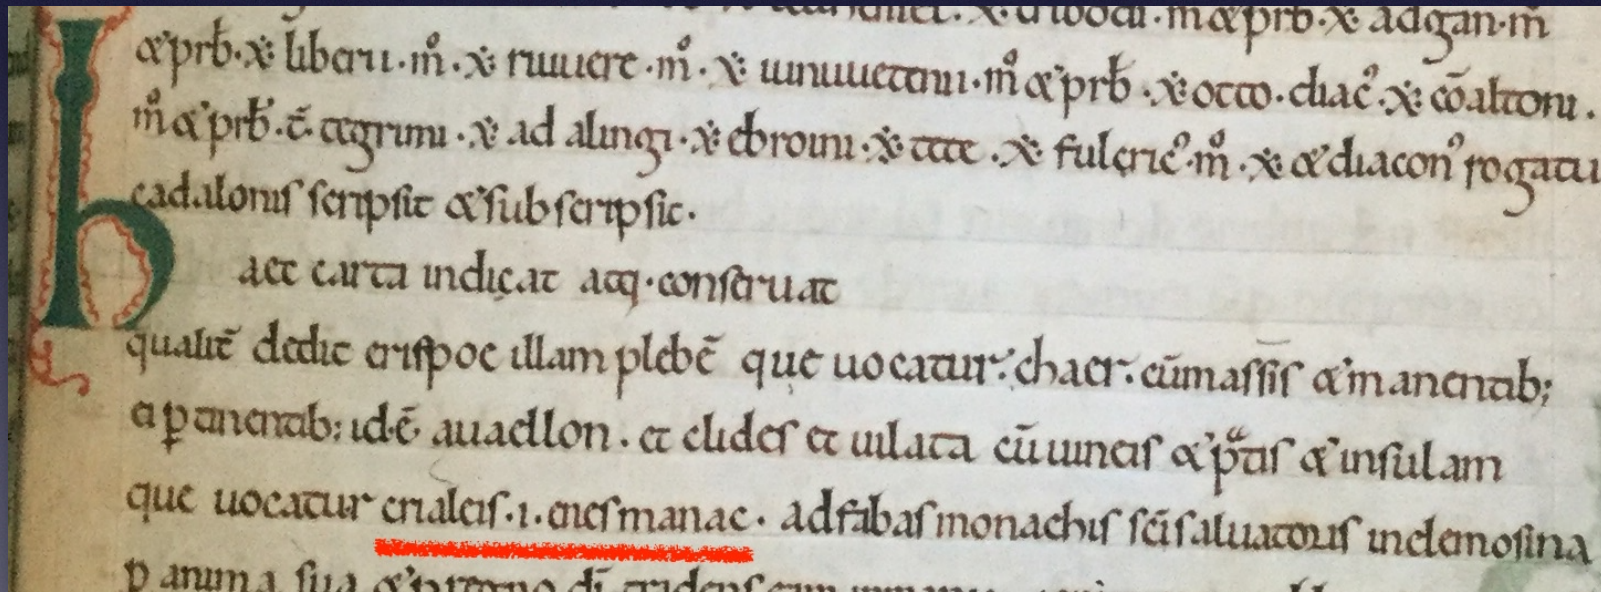 m et prb̄. x̄ adgan. m̄
et prb̄. x̄ liberii. m̊. x̄ riuuere. m̊. x̄ uuiuuetenii. m̊ et prb̄. x̄ otto. diac̊. x̄ cōaltoru.
m̊ et prb̄. t̄. tegrimi. x̄ ad alingi. x̄ ebroini. x̄ tete. x̄ fulcric̊. m̊. x̄ et diacon̊ rogatu
cadalonis scripsit et subscripsit.
haec carta indicat atq; conseruat
qualit̄ dedit erispoe illam plebē que uocatur. chaer. cū massis et manentib;
ei ꝑtinentib; id.ē. auaellon. et clides et uilata cū uineis et pᵃtis et insulam
que uocatur enialeis. i. enesmanac. ad fabas monachis sc̄i saluatoris in elemosina
ꝓ anima sua et ꝓ regno